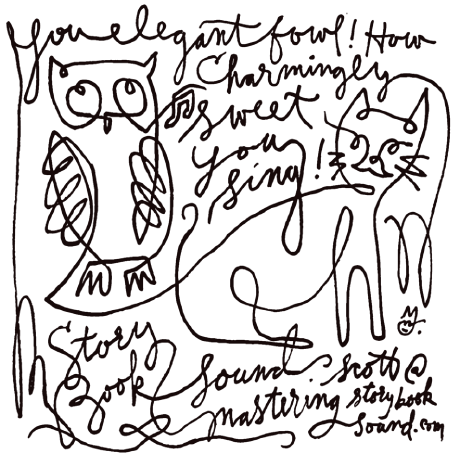 You elegant fowl! How
Charmingly
sweet
you
sing!
Story
Book Sound.
mastering
scott@
storybook
sound.com
M.